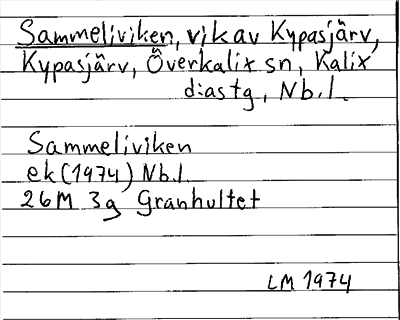 Sammeliviken, vik av Kypasjärv,
Kypasjärv, Överkalix sn, Kalix
d:astg, Nb.l.
Sammeliviken
ek (1974) Nb.l.
26M 3g Granhultet
LM 1974